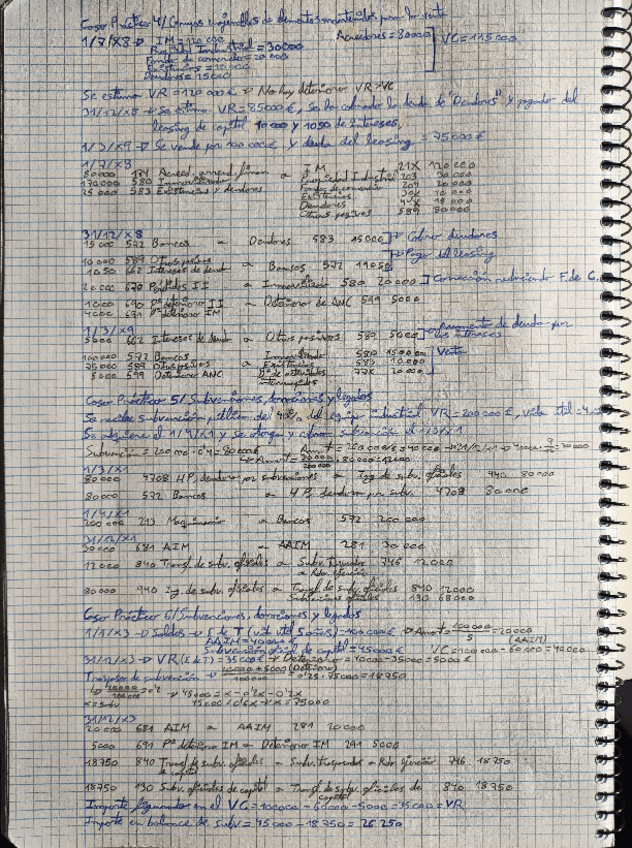 Caso Práctico 4/ Grupos enajenables de elementos mantenidos para la venta
1/7/X8 → IM = 120 000
Propiedad Industrial = 30 000
Fondo de comercio = 20 000
Existencias = 10 000
Deudores = 15 000
Acreedores = 80 000
VC = 115 000
Se estima VR = 120 000 € → No hay deterioro VR > VC
31/12/X8 → Se estima VR = 85 000 €, se ha cobrado la deuda de "Deudores" y pagado del
leasing de capital 10 000 y 1050 de intereses.
1/3/X9 → Se vende por 100 000 € y deuda del leasing = 75 000 €
1/7/X8
80 000 174 Acreed. arrend. finan a IM 21X 120 000
170 000 580 Inmovilizado Propiedad Industrial 203 30 000
25 000 583 Existencias y deudores Fondo de comercio 204 20 000
Existencias 30X 10 000
Deudores 4XX 15 000
Otros pasivos 589 80 000
31/12/X8
15 000 572 Bancos a Deudores 583 15 000 → Cobrar deudores
10 000 589 Otros pasivos → Pago del leasing
1050 662 Intereses de deud a Bancos 572 11050
20 000 670 Pérdidas II a Inmovilizado 580 20 000 → Corrección reduciendo F. de C.
1000 690 Pª deterioro II a Deterioro de ANC 599 5000
4000 691 Pª deterioro IM
1/3/X9
5000 662 Intereses de deuda a Otros pasivos 589 5000 → Aumento de deuda por
los intereses
100 000 572 Bancos Inmovilizado 580 150 000 Venta
75 000 589 Otros pasivos a Existencias 583 10 000
5000 599 Deterioro ANC Bº de actividades 77X 20 000
interrumpidas
Caso Práctico 5/ Subvenciones, donaciones y legados
Se recibe subvención pública del 40% del equipo industrial VR = 200 000 €, vida útil =
Se adquiere el 1/4/X1 y se otorga y cobra subvención el 1/3/X1
Subvención = 200 000 · 0'4 = 80 000 €
1/3/X1
80 000 4708 HP, deudora por subvenciones a Ing de subv. oficiales 940 80 000
80 000 572 Bancos a HP, deudora por subv. 4708 80 000
1/4/X1
200 000 213 Maquinaria a Bancos 572 200 000
31/12/X1
30 000 681 AIM a AAIM 281 30 000
12 000 840 Transf. de subv. oficiales a Subv. traspasadas 746 12 000
a Rdo. ejercicio
80 000 940 Ig. de subv. oficiales a Transf. de subv. oficiales 840 12 000
Subvenciones oficiales 130 68 000
Caso Práctico 6/ Subvenciones, donaciones y legados
1/1/X3 → Saldos → (vida útil 5 años) = 100 000 € → Amort = 100000/5 = 20000
AAIM = 40 000 €
Subvención oficial de capital = 45 000 € VC = 100 000 - 60 000 = 40 000
31/12/X3 → VR = 35 000 € → Deterioro = 40 000 - 35 000 = 5000 €
Traspaso de subvención → 0'25 · 75 000 = 18 750
→ 20000/100000 = 0'2 → 45 000 = x - 0'2x - 0'2x
x = subv 45 000 = 0'6x → x = 75 000
31/12/X3
20 000 681 AIM a AAIM 281 20 000
5000 691 Pª deterioro IM a Deterioro IM 291 5000
18 750 840 Transf. de subv. oficiales a Subv. traspasadas a Rdo. ejercicio 746 18 750
de capital
18 750 130 Subv. oficiales de capital a Transf. de subv. oficiales de 840 18 750
capital
Importe en el VC = 100 000 - 60 000 - 5000 = 35 000 = VR
Importe en balance de subv = 45 000 - 18 750 = 26 250